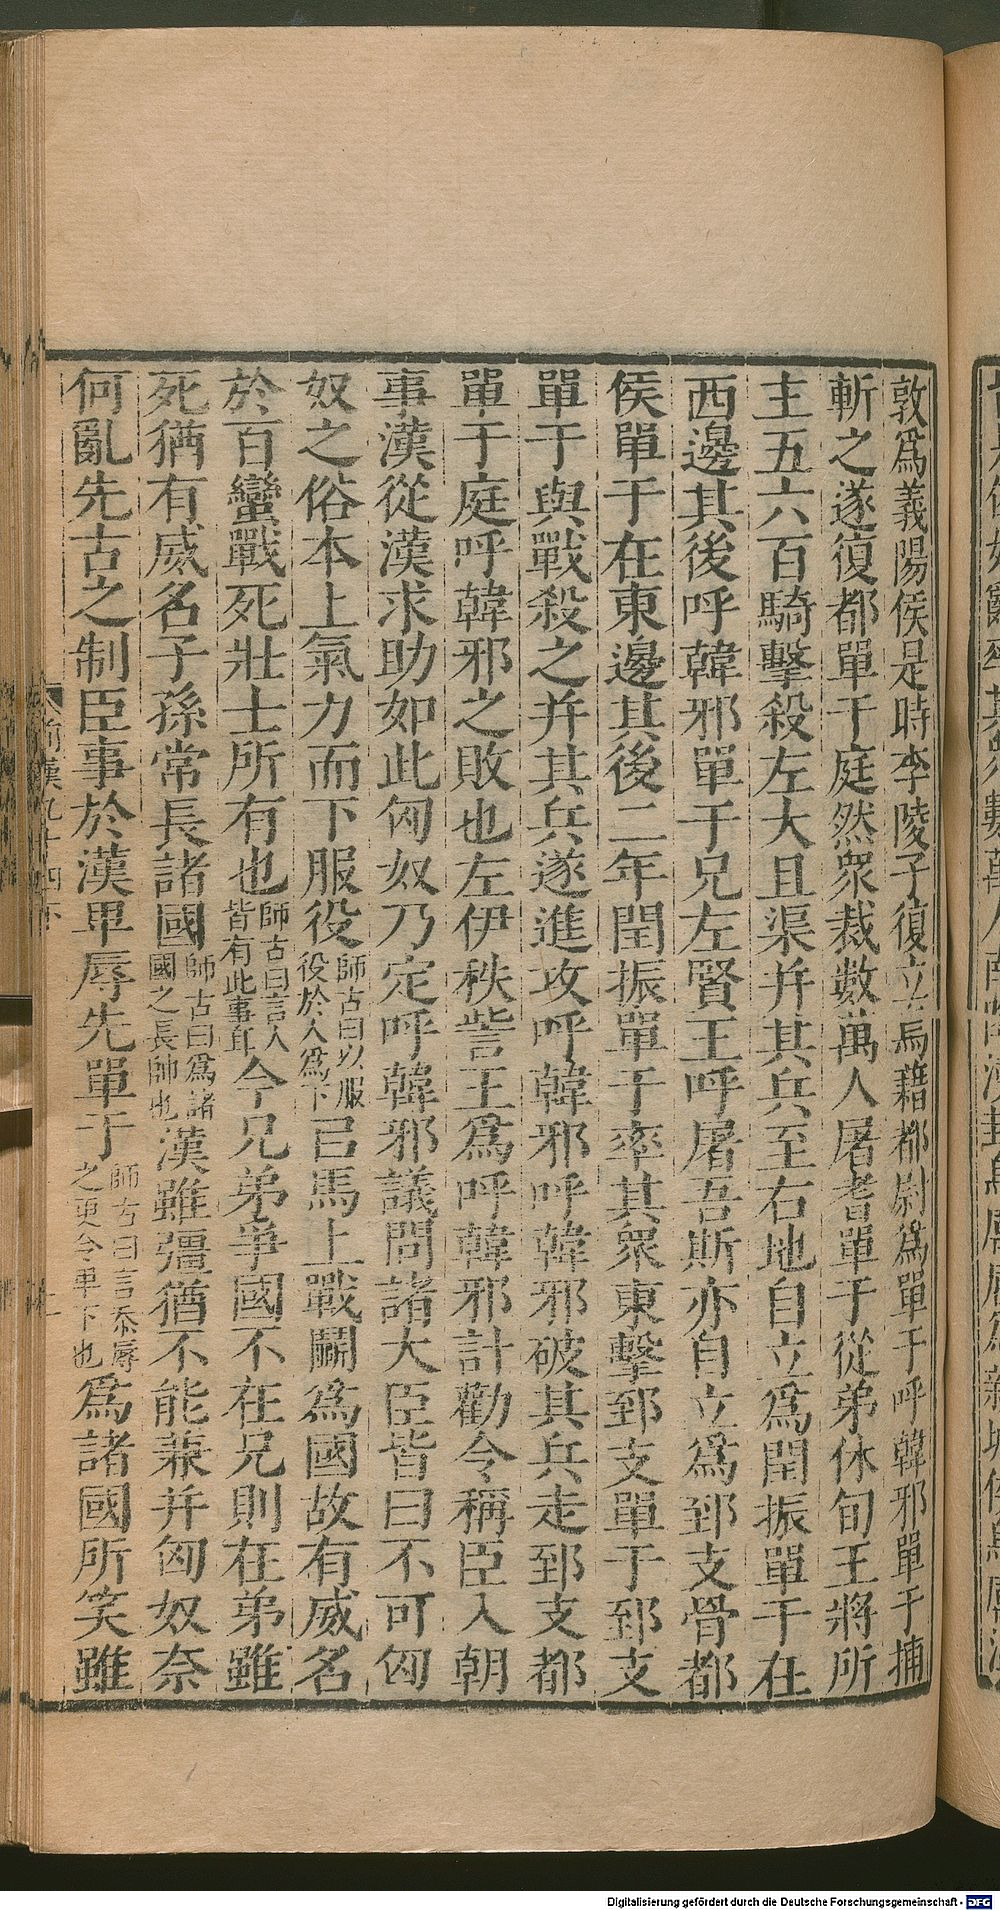 敦爲義陽侯是時李陵子復立烏藉都尉爲單于呼韓邪單于捕
斬之遂復都單于庭然衆裁數萬人屠耆單于從弟休旬王將所
主五六百騎擊殺左大且渠并其兵至右地自立爲閏振單于在
西邊其後呼韓邪單于兄左賢王呼屠吾斯亦自立爲郅支骨都
侯單于在東邊其後二年閏振單于率其衆東擊郅支單于郅支
單于與戰殺之并其兵遂進攻呼韓邪呼韓邪破其兵走郅支都
單于庭呼韓邪之敗也左伊秩訾王爲呼韓邪計勸令稱臣入朝
事漢從漢求助如此匈奴乃定呼韓邪議問諸大臣皆曰不可匈
奴之俗本上氣力而下服役師古曰以服役於人爲下㠯馬上戰鬭爲國故有威名
於百蠻戰死壯士所有也師古曰言人皆有此事耳今兄弟爭國不在兄則在弟雖
死猶有威名子孫常長諸國師古曰爲諸國之長帥也漢雖彊猶不能兼并匈奴奈
何亂先古之制臣事於漢卑辱先單于師古曰言忝辱之更令卑下也爲諸國所笑雖
前漢九十四下
Digitalisierung gefördert durch die Deutsche Forschungsgemeinschaft - DFG